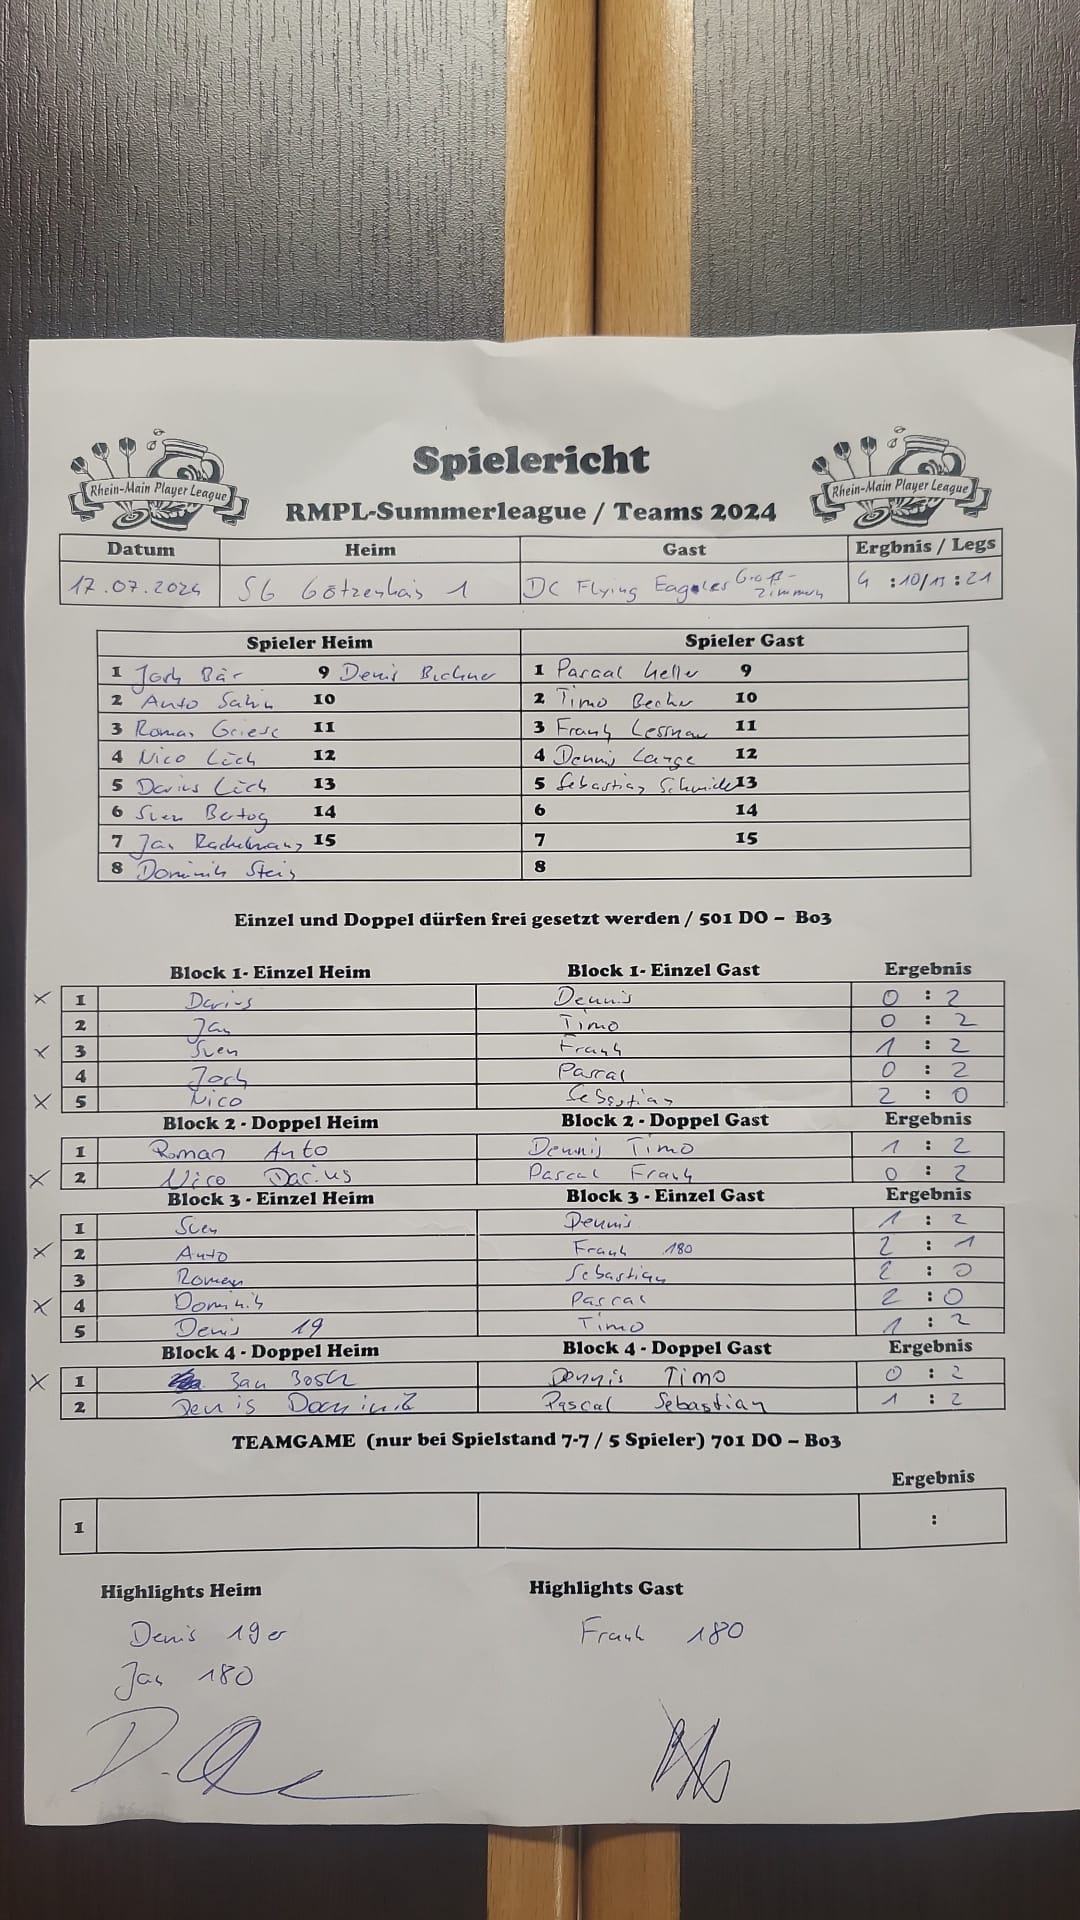 Rhein-Main Player League
Spielericht
Rhein-Main Player League
RMPL-Summerleague / Teams 2024
Datum Heim Gast Ergbnis / Legs
17.07.2024 SG Götzenhain 1 DC Flying Eagles Groß-Zimmern 4 :10/13 :21
Spieler Heim Spieler Gast
1 Josh Bär 9 Denis Buchner 1 Pascal Heller 9
2 Anto Sahin 10 2 Timo Becker 10
3 Roman Griese 11 3 Frank Lessnau 11
4 Nico Löch 12 4 Dennis Lange 12
5 Darius Löch 13 5 Sebastian Schmidt 13
6 Sven Bertog 14 6 14
7 Jan 15 7 15
8 Dominik Stein 8
Einzel und Doppel dürfen frei gesetzt werden / 501 DO – Bo3
Block 1- Einzel Heim Block 1- Einzel Gast Ergebnis
x 1 Darius Dennis 0 : 2
2 Jan Timo 0 : 2
x 3 Sven Frank 1 : 2
4 Josh Pascal 0 : 2
x 5 Nico Sebastian 2 : 0
Block 2 - Doppel Heim Block 2 - Doppel Gast Ergebnis
1 Roman Anto Dennis Timo 1 : 2
x 2 Nico Darius Pascal Frank 0 : 2
Block 3 - Einzel Heim Block 3 - Einzel Gast Ergebnis
1 Sven Dennis 1 : 2
x 2 Anto Frank 180 2 : 1
3 Roman Sebastian 2 : 0
x 4 Dominik Pascal 2 : 0
5 Denis 19 Timo 1 : 2
Block 4 - Doppel Heim Block 4 - Doppel Gast Ergebnis
x 1 Jan Josh Dennis Timo 0 : 2
2 Denis Dominik Pascal Sebastian 1 : 2
TEAMGAME (nur bei Spielstand 7-7 / 5 Spieler) 701 DO – Bo3
Ergebnis
1 :
Highlights Heim Highlights Gast
Denis 19er Frank 180
Jan 180